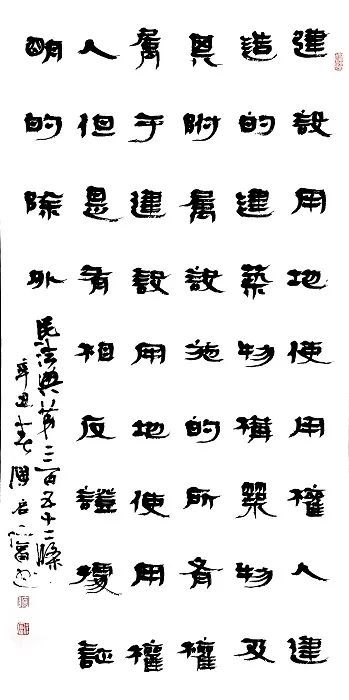 建設用地使用權人建
造的建築物構築物及
其附屬設施的所有權
屬于建設用地使用權
人但是有相反證據証
明的除外
民法典第三百五十二條
辛丑春